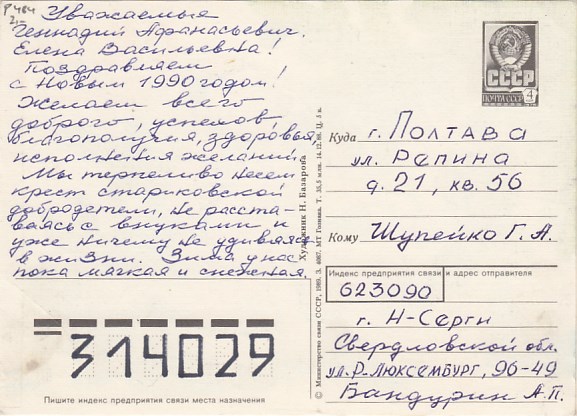 Р 484
2,-
Уважаемые
Геннадий Афанасьевич,
Елена Васильевна!
Поздравляем
с Новым 1990 годом!
Желаем всего
доброго, успехов,
благополучия, здоровья,
исполнения желаний.
Мы терпеливо несем
крест стариковской
добродетели, не расста-
ваясь с внуками и
уже ничему не удивляясь
в жизни. Зима у нас
пока мягкая и снежная.
314029
Пишите индекс предприятия связи места назначения
Художник Н. Базарова
© Министерство связи СССР, 1989. З. 4087. МТ Гознака.
СССР
ПОЧТА СССР
4
Куда г. Полтава
ул. Репина
д. 21, кв. 56
Кому Шупейко Г. А.
Индекс предприятия связи и адрес отправителя
623090
г. Н-Серги
Свердловской обл.
ул. Р. Люксембург, 96-49
Бандурин А.П.